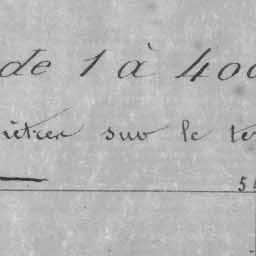 de 1 à 400
mètres sur le te
5